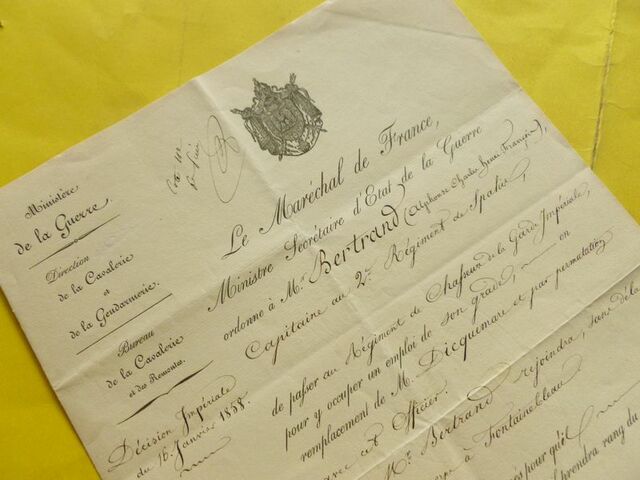 Ministère
de la Guerre.
Direction
de la Cavalerie
et
de la Gendarmerie.
Bureau
de la Cavalerie
et des Remontes.
Décision Impériale
du 16 Janvier 1858.
Le Maréchal de France,
Ministre Secrétaire d'État de la Guerre
ordonne à Mr. Bertrand (Alphonse Charles Jean François),
Capitaine au 2me Régiment de Spahis,
de passer au Régiment de Chasseurs de la Garde Impériale,
pour y occuper un emploi de son grade, en
remplacement de M. Dicquemare et par permutation
avec cet Officier.
Mr. Bertrand rejoindra, sans déla
à Fontainebleau
pour qu'il
prendra rang du